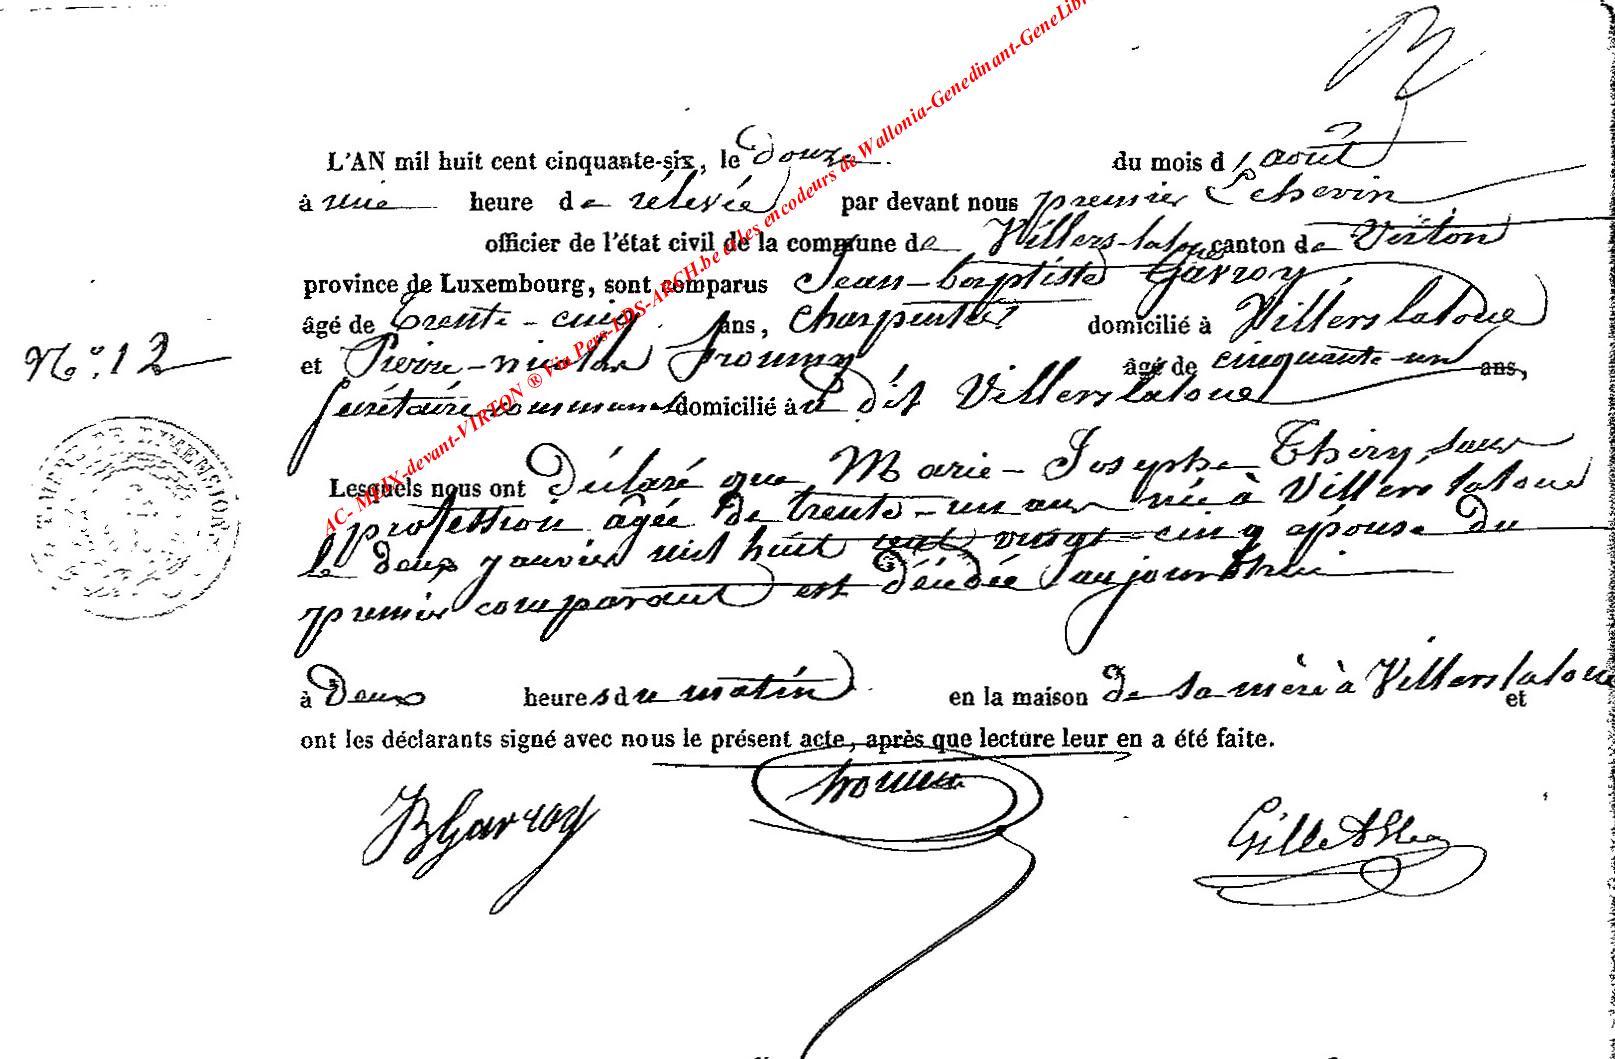 L'AN mil huit cent cinquante-six, le douze du mois d'août
à une heure de rélevée par devant nous premier Echevin
officier de l'état civil de la commune de Villers-laloue canton de Virton
province de Luxembourg, sont comparus Jean-baptiste Gavroy
âgé de trente-cinq ans, charpentier domicilié à Villers laloue
N° 12 et Pierre-nicolas froumy âgé de cinquante-un ans,
sécrétaire communal domicilié à u dit Villers laloue
Lesquels nous ont Déclaré que Marie-Josephe Thiry, sans
profession agée de trente-un ans née à Villers laloue
le deux janvier mil huit cent vingt-cinq épouse du
premier comparant est décédée aujourd'hui
à Deux heures du matin en la maison de sa mère à Villers laloue et
ont les déclarants signé avec nous le présent acte, après que lecture leur en a été faite.
JBGavroy froumy Gillet
AC- MEIX-devant-VIRTON ® Via Pers-LDS-ARCH.be et les encodeurs de Wallonia-Genedinant-GeneLib